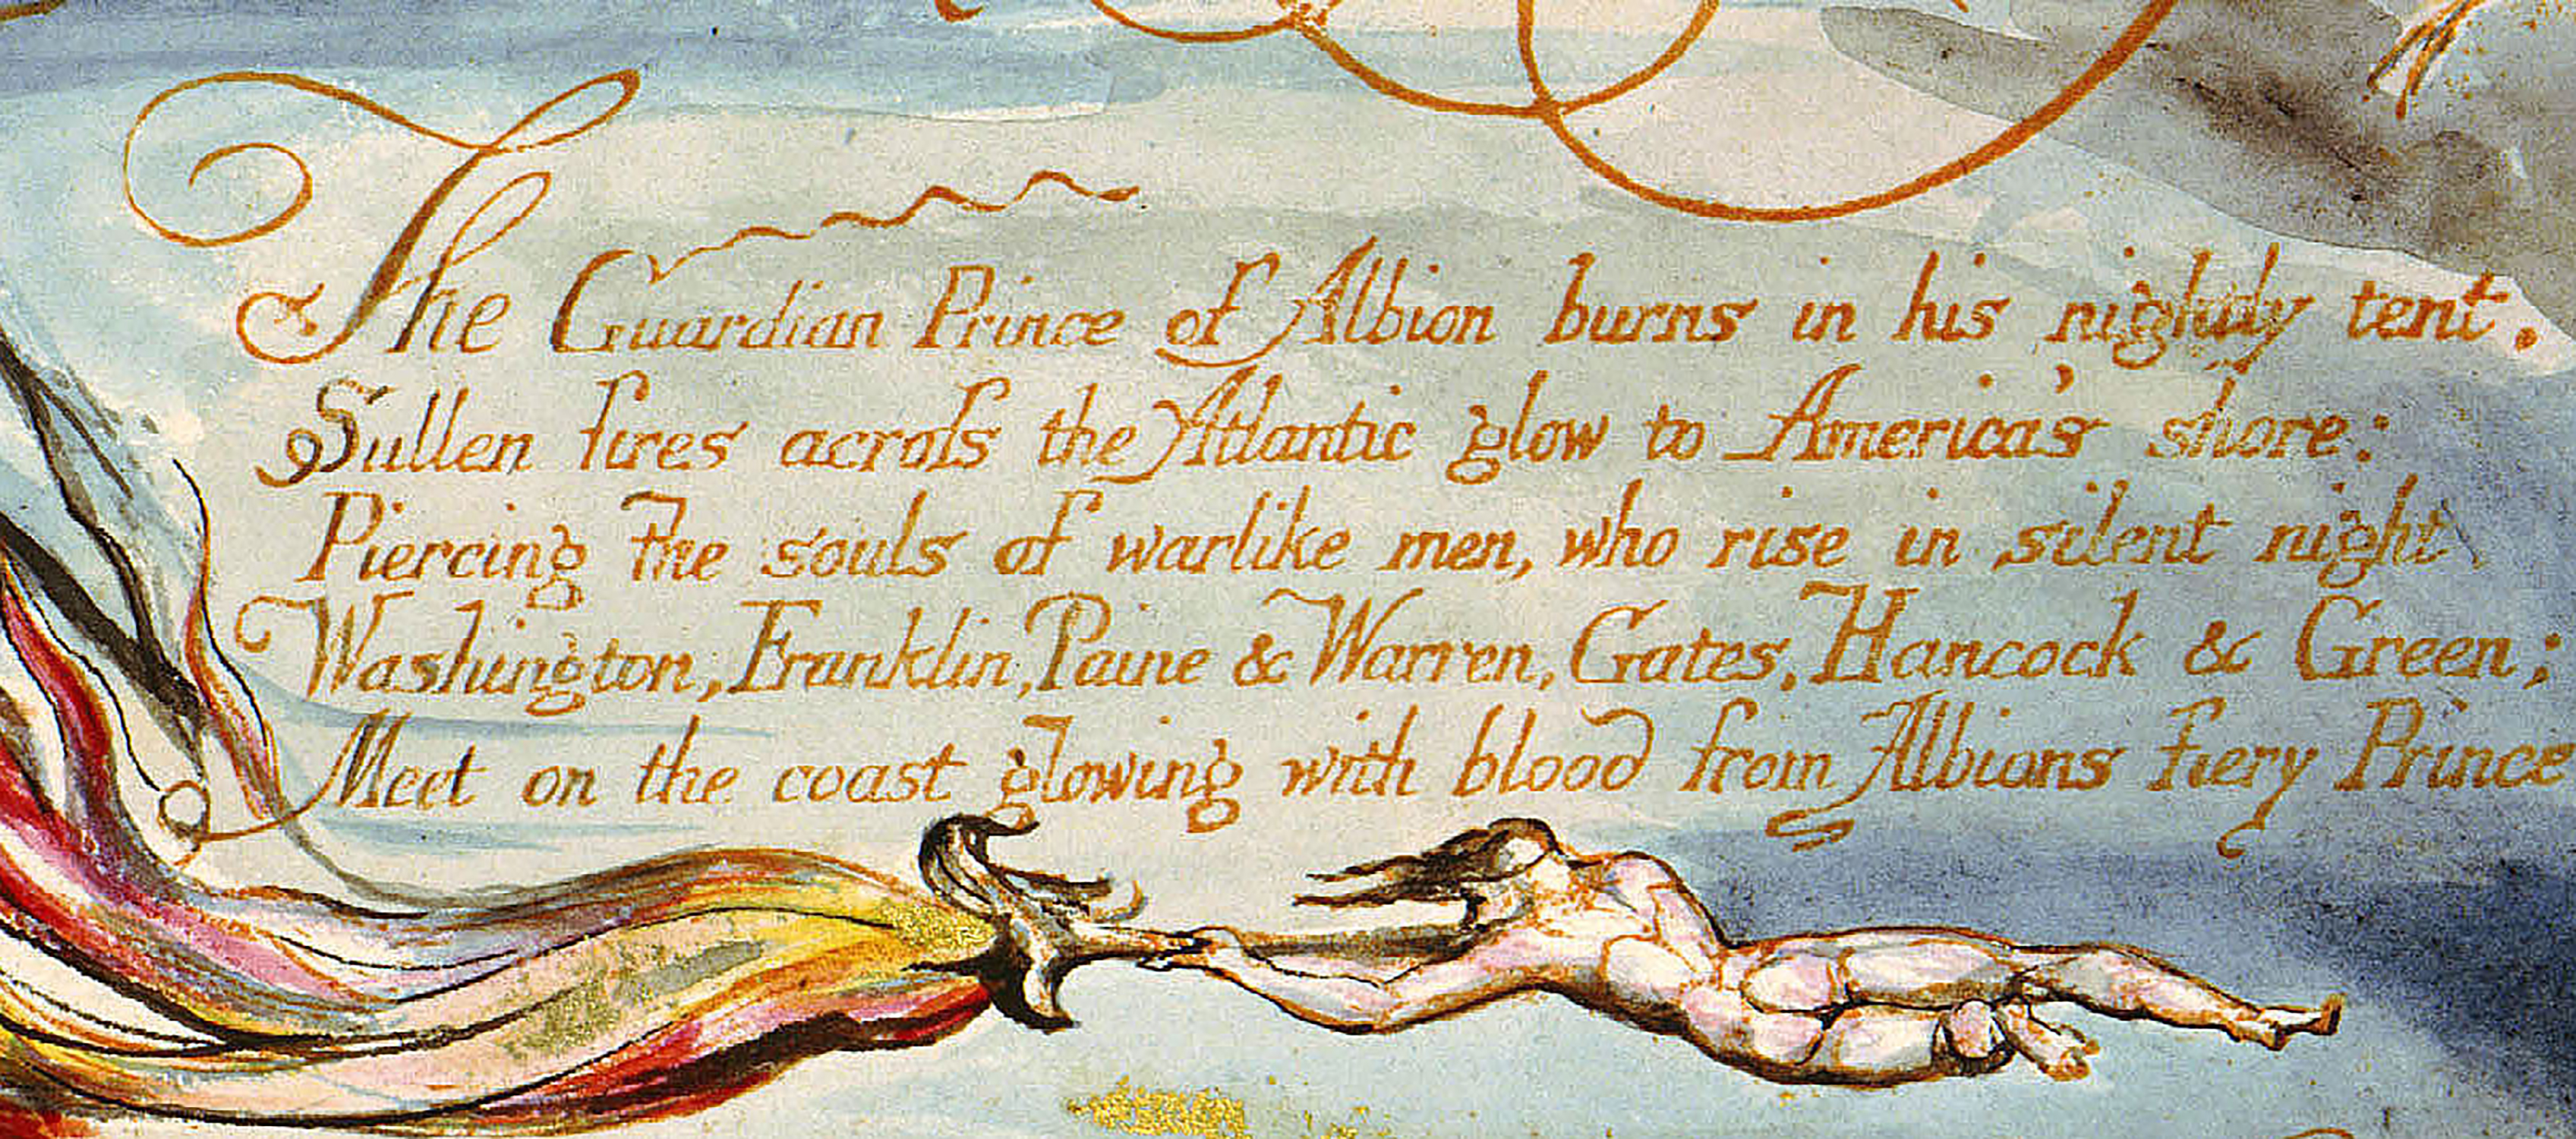 The Guardian Prince of Albion burns in his nightly tent.
Sullen fires acroſs the Atlantic glow to America's shore:
Piercing the souls of warlike men, who rise in silent night
Washington, Franklin, Paine & Warren, Gates, Hancock & Green;
Meet on the coast glowing with blood from Albions fiery Prince